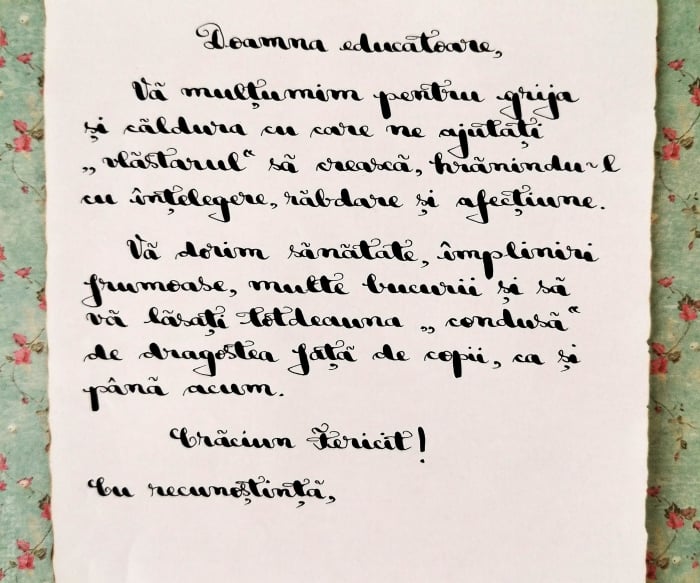 Doamna educatoare,
Vă mulțumim pentru grija
și căldura cu care ne ajutați
„vlăstarul“ să crească, hrănindu-l
cu înțelegere, răbdare și afecțiune.
Vă dorim sănătate, împliniri
frumoase, multe bucurii și să
vă lăsați totdeauna „condusă“
de dragostea față de copii, ca și
până acum.
Crăciun Fericit!
Cu recunoștință,